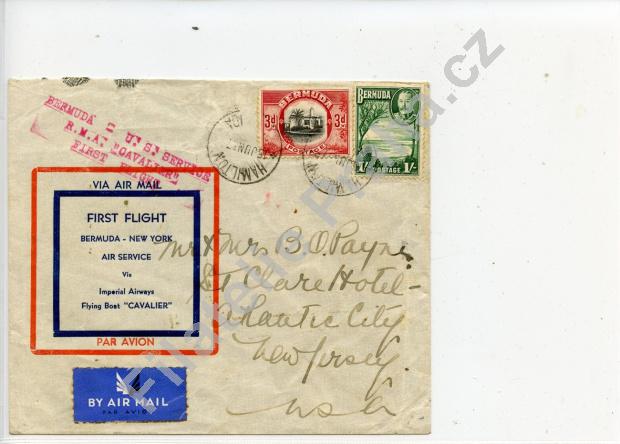 BERMUDA - U.S. SERVICE
R.M.A. "CAVALIER"
FIRST
BERMUDA
3d 3d
POSTAGE
BERMUDA
1/- POSTAGE 1/-
HAMILTON
JUN
VIA AIR MAIL
FIRST FLIGHT
BERMUDA - NEW YORK
AIR SERVICE
Via
Imperial Airways
Flying Boat "CAVALIER"
PAR AVION
BY AIR MAIL
PAR AVION
Mr & Mrs B.O. Payne
St Clare Hotel -
Atlantic City
New Jersey
USA
Filatelie Praha.cz